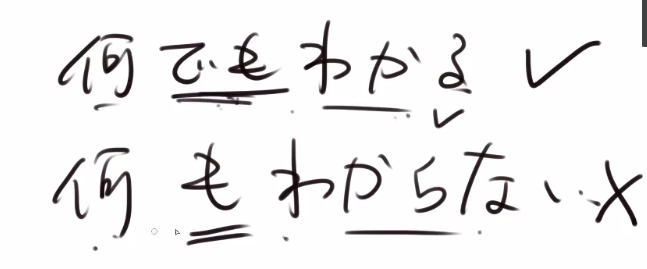 何でもわかる ✓
何もわからない x